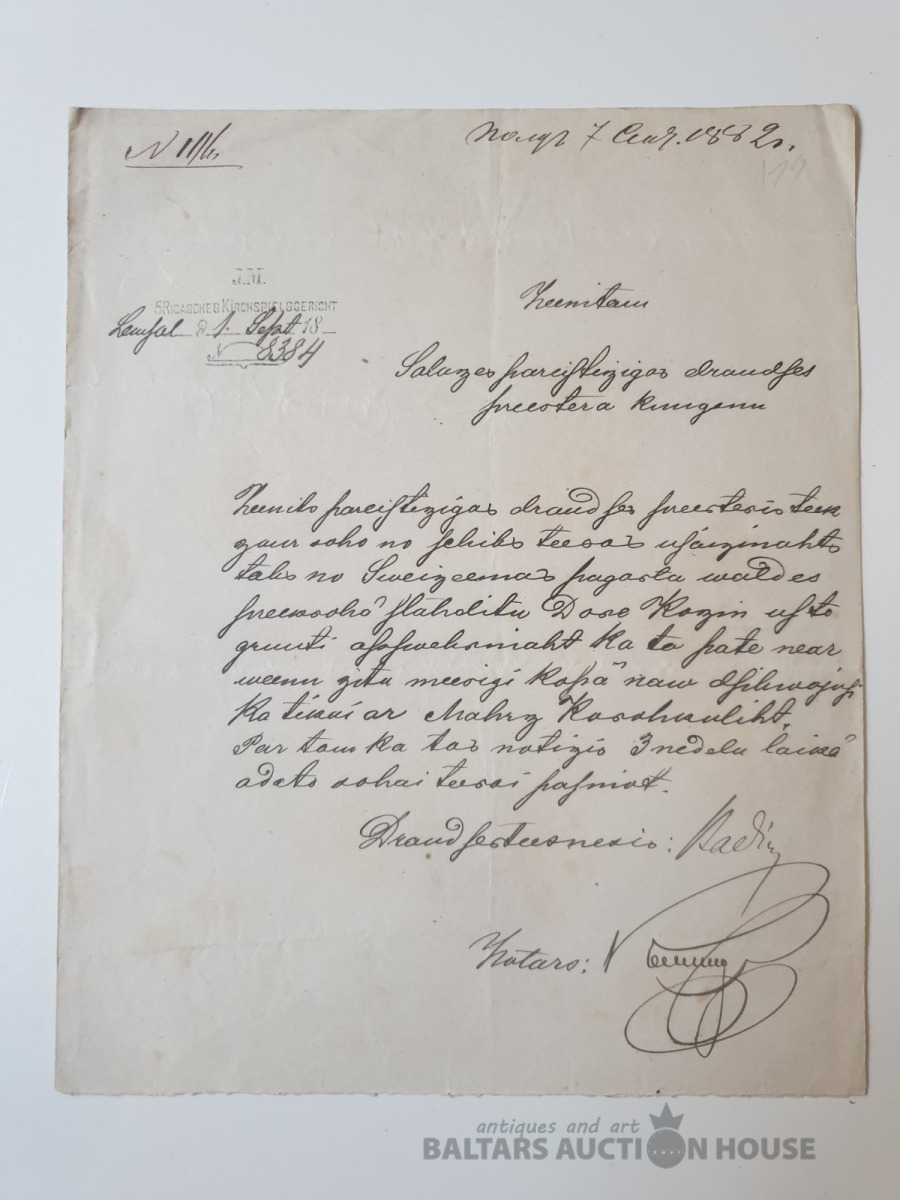 N 1116.
Получ 7 Сент. 1882 г.
119
J.M.
5 RIGASCHES KIRCHSPIELSGERICHT
Lemsal d 1. Sept 18
N 8384
Zeenitam
Salazes pareiſtizigas draudſes
preestera kungam
Zeenits pareiſtizigas draudſes preesteris teek
zaur scho no ſchihs teesas uſaizinahts
tahs no Sweizeemas pagasta waldes
preekscha ſtahditu Dore Kozin uſ to
grunti apſwehrinaht ka ta pate near
weenu zitu meesigi kopâ naw dſihwojuſi
ka tikai ar Mahrz
Par tam ka tas notizis 3 nedelu laikâ
schai teesai paſniot.
Draudſesteesnesis:
Notars:
antiques and art
BALTARS AUCTION HOUSE